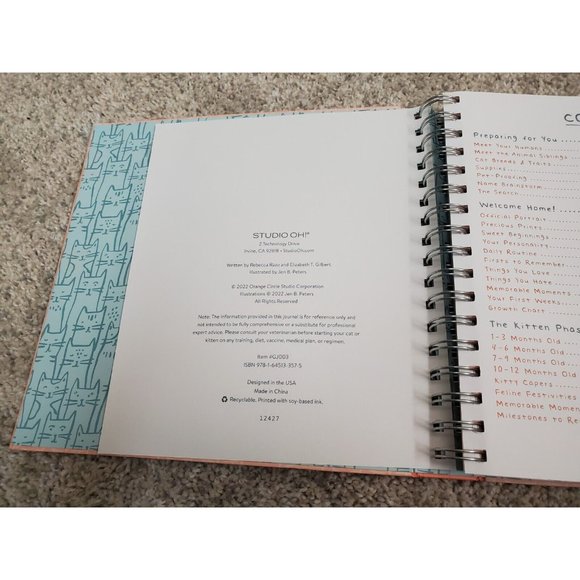 STUDIO OH!®
2 Technology Drive
Irvine, CA 92618 • StudioOh.com
Written by Rebecca Razo and Elizabeth T. Gilbert
Illustrated by Jen B. Peters
© 2022 Orange Circle Studio Corporation
Illustrations © 2022 Jen B. Peters
All Rights Reserved
Note: The information provided in this journal is for reference only and
not intended to be fully comprehensive or a substitute for professional
expert advice. Please consult your veterinarian before starting your cat or
kitten on any training, diet, vaccine, medical plan, or regimen.
Item #GJ003
ISBN 978-1-64513-357-5
Designed in the USA
Made in China
Recyclable. Printed with soy-based ink.
12427
CO
Preparing for You
Meet Your Humans
Meet the Animal Siblings
Cat Breeds & Traits
Supplies
Pet-Proofing
Name Brainstorm
The Search
Welcome Home!
Official Portrait
Precious Prints
Sweet Beginnings
Your Personality
Daily Routine
Firsts to Remember
Things You Love
Things You Hate
Memorable Moments
Your First Weeks
Growth Chart
The Kitten Phas
1-3 Months Old
4-6 Months Old
7-9 Months Old
10-12 Months Old
Kitty Capers
Feline Festivities
Memorable Momen
Milestones to Re